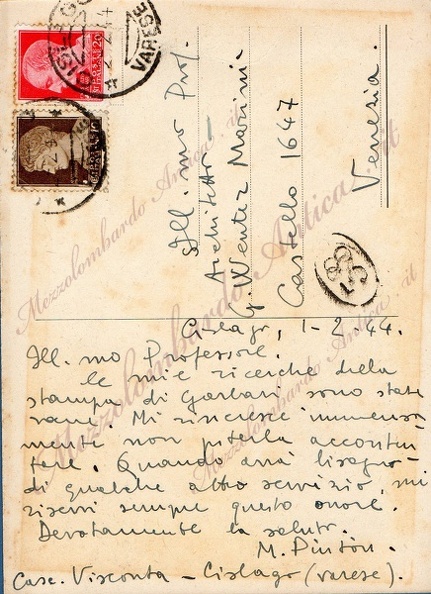 Ill.mo Prof.
Architetto
G. Wenter Marini
Castello 1647
Venezia.
Cislago, 1-2-44.
Ill.mo Professore.
le mie ricerche della
stampa di Garbari sono state
vane. Mi rincresce immensa
mente non poterla acconten
tare. Quando avrà bisogno
di qualche altro servizio, mi
riservi sempre questo onore.
Devotamente la saluto.
M. Pintón.
Case. Visconta - Cislago (Varese).
VARESE
Mezzolombardo Antica.it
Mezzolombardo Antica.it